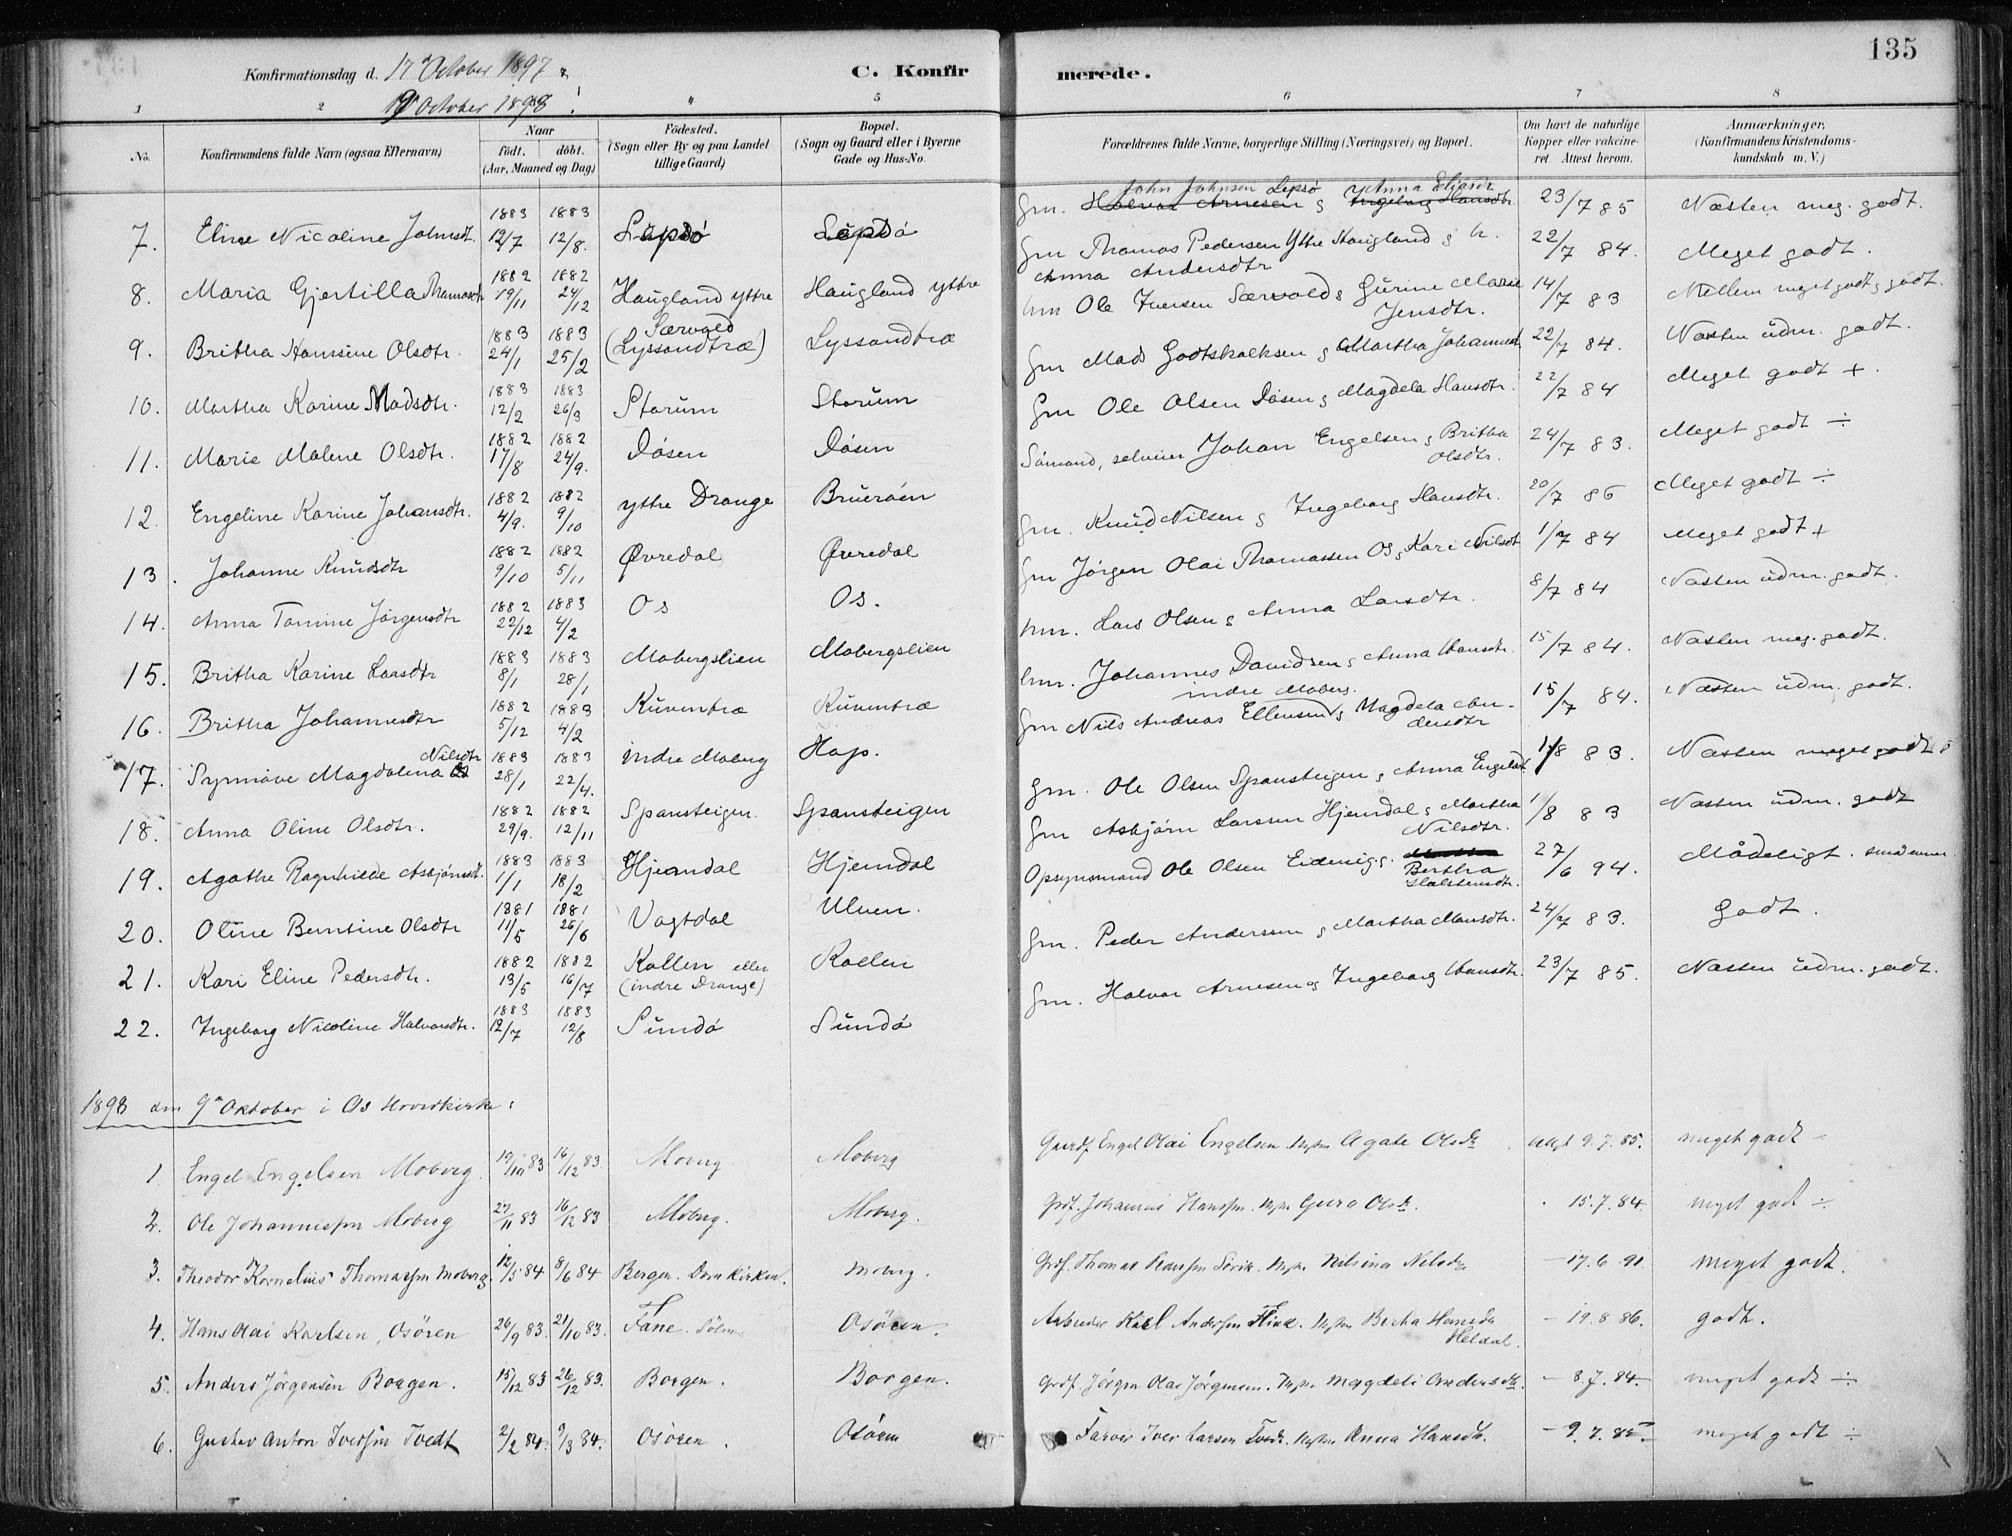 135
Konfirmationsdag d. 17 October 1897 &
9 October 1898
C. Konfirmerede.
1 2 " 5 6 7 8
No. Konfirmandens fulde Navn (ogsaa Efternavn) Naar födt. döbt. (Aar, Maaned og Dag) Födested. (Sogn eller By og paa Landet tillige Gaard) Bopæl. (Sogn og Gaard eller i Byerne Gade og Hus-No. Forældrenes fulde Navne, borgerlige Stilling (Næringsvei) og Bopæl. Om havt de naturlige Kopper eller vakcineret. Attest herom. Anmærkninger. (Konfirmandens Kristendomskundskab m. V.)
7. Eline Nicoline Johnsdt. 1883 12/7 1883 12/8. Lepsö Lepsö Gm. John Johnsen Lepsö Anna Eliasdr Halvor Arnesen & Ingeborg Hansdtr 23/7 85 Næsten meg. godt.
8. Maria Gjertilla Thomasdtr 1882 19/11 1882 24/12 Haugland yttre Haugland yttre Gm Thomas Pedersen Yttre Haugland & h. Anna Andersdtr 22/7 84. Meget godt.
9. Britha Hansine Olsdtr. 1883 24/1 1883 25/2 Særvold (Lyssandtræ) Lyssandtræ hm Ole Iversen Særvold & Gurine Marie Jensdtr. 14/7 83 Mellem meget godt & godt.
10. Martha Karine Madsdtr. 1883 12/2 1883 26/3 Storum Storum Gm Mads Godtskalksen & Martha Johannesd. 22/7 84. Næsten udm. godt.
11. Marie Malene Olsdtr. 1882 17/8 1882 24/9. Døsen Døsen Gm Ole Olsen Døsen & Magdela Hansdtr. 22/7 84 Meget godt +.
12. Engeline Karine Johansdtr. 1882 4/9. 1882 9/10 yttre Drange Bruerøen Sömand, selveier Johan Engelsen & Britha Olsdtr. 24/7 83. Meget godt ÷
13. Johanne Knudsdtr 1882 9/10 1882 5/11 Øvredal Øvredal Gm. Knud Nilsen & Ingeborg Hansdtr. 20/7 86 Meget godt ÷
14. Anna Tomine Jörgensdtr 1882 22/12 1883 4/2 Os Os. Gm Jörgen Olai Thomassen Os & Kari Nilsdt 1/7 84 Meget godt +
15. Britha Karine Larsdtr 1883 8/1 1883 28/1 Mobergslien Mobergslien hm. Lars Olsen & Anna Larsdtr. 8/7 84 Næsten udm. godt.
16. Britha Johannesdtr 1882 5/12 1883 4/2 Kuventræ Kuventræ hm. Johannes Davidsen & Anna Hansdtr. 15/7 84. Næsten meg. godt.
17. Synnöve Magdalena Nilsdtr 1883 28/1 1883 22/4. indre Moberg Hop. Gm Nils Andreas Ellensen indre Moberg. & Magdela Andersdtr 15/7 84. Næsten udm. godt.
18. Anna Oline Olsdtr. 1882 29/9. 1882 12/11 Spansteigen. Spansteigen Gm. Ole Olsen Spansteigen & Anna Engelsdt. 1/8 83. Næsten meget godt
19. Agathe Ragnhilde Asbjörnsdt. 1883 1/1 1883 18/2 Hjemdal Hjemdal Gm Asbjörn Larssen Hjemdal & Martha Nilsdtr. 1/8 83 Næsten udm. godt
20. Oline Berntine Olsdtr 1881 11/5 1881 26/6 Vagtdal Ulven. Opsynsmand Ole Olsen & Bertha Halstensdtr. 27/6 94. Mådeligt.
21. Kari Eline Pedersdtr. 1882 13/5 1882 16/7 Kollen eller (indre Drange) Kollen Gm. Peder Anderssen & Martha Monsdtr. 24/7 83. Godt.
22. Ingeborg Nicoline Halvorsdtr. 1883 12/7 1883 12/8 Sundö Sundö Gm. Halvor Arnesen og Ingeborg Hansdtr. 23/7 85. Næsten udm. godt.
1898 den 9de Oktober i Os Hovedkirke:
1. Engel Engelsen Moberg. 19/10 83 16/12 83. Moberg. Moberg Gaardf. Engel Olai Engelsen. Agate Olsdr. 9.7.85. meget godt
2. Ole Johannessen Moberg 27/11 83 16/12 83 Moberg. Moberg. Grdf. Johannes Hanssen. Guro Olsdr. 15.7.84. meget godt ÷
3. Theodor Kornelius Thomassen Moberg 12/5 84 8/6 84 Bergen. Domkirken. Moberg. Grdf. Thomas Pedersen Nilsina Nilsdr — 17.6.91. meget godt.
4. Hans Olai Karlsen, Osören 26/9 83. 21/10 83. Fane. Osören. Arbeider Karl Andersen Berta Hansdr Heldal. — 19.8.86. godt.
5. Anders Jörgensen Borgen. 15/12 83 26/12 83. Borgen. Borgen. Grdf. Jörgen Olai Jörgensen. Magdeli Andersdtr. — 8.7.84. meget godt ÷
6. Gustav Anton Iversen Tvedt 2/2 84. 9/3 84. Osören. Osören Farver Iver Larsen Tvedt. Anna Hansdtr. — 9.7.85. meget godt ÷